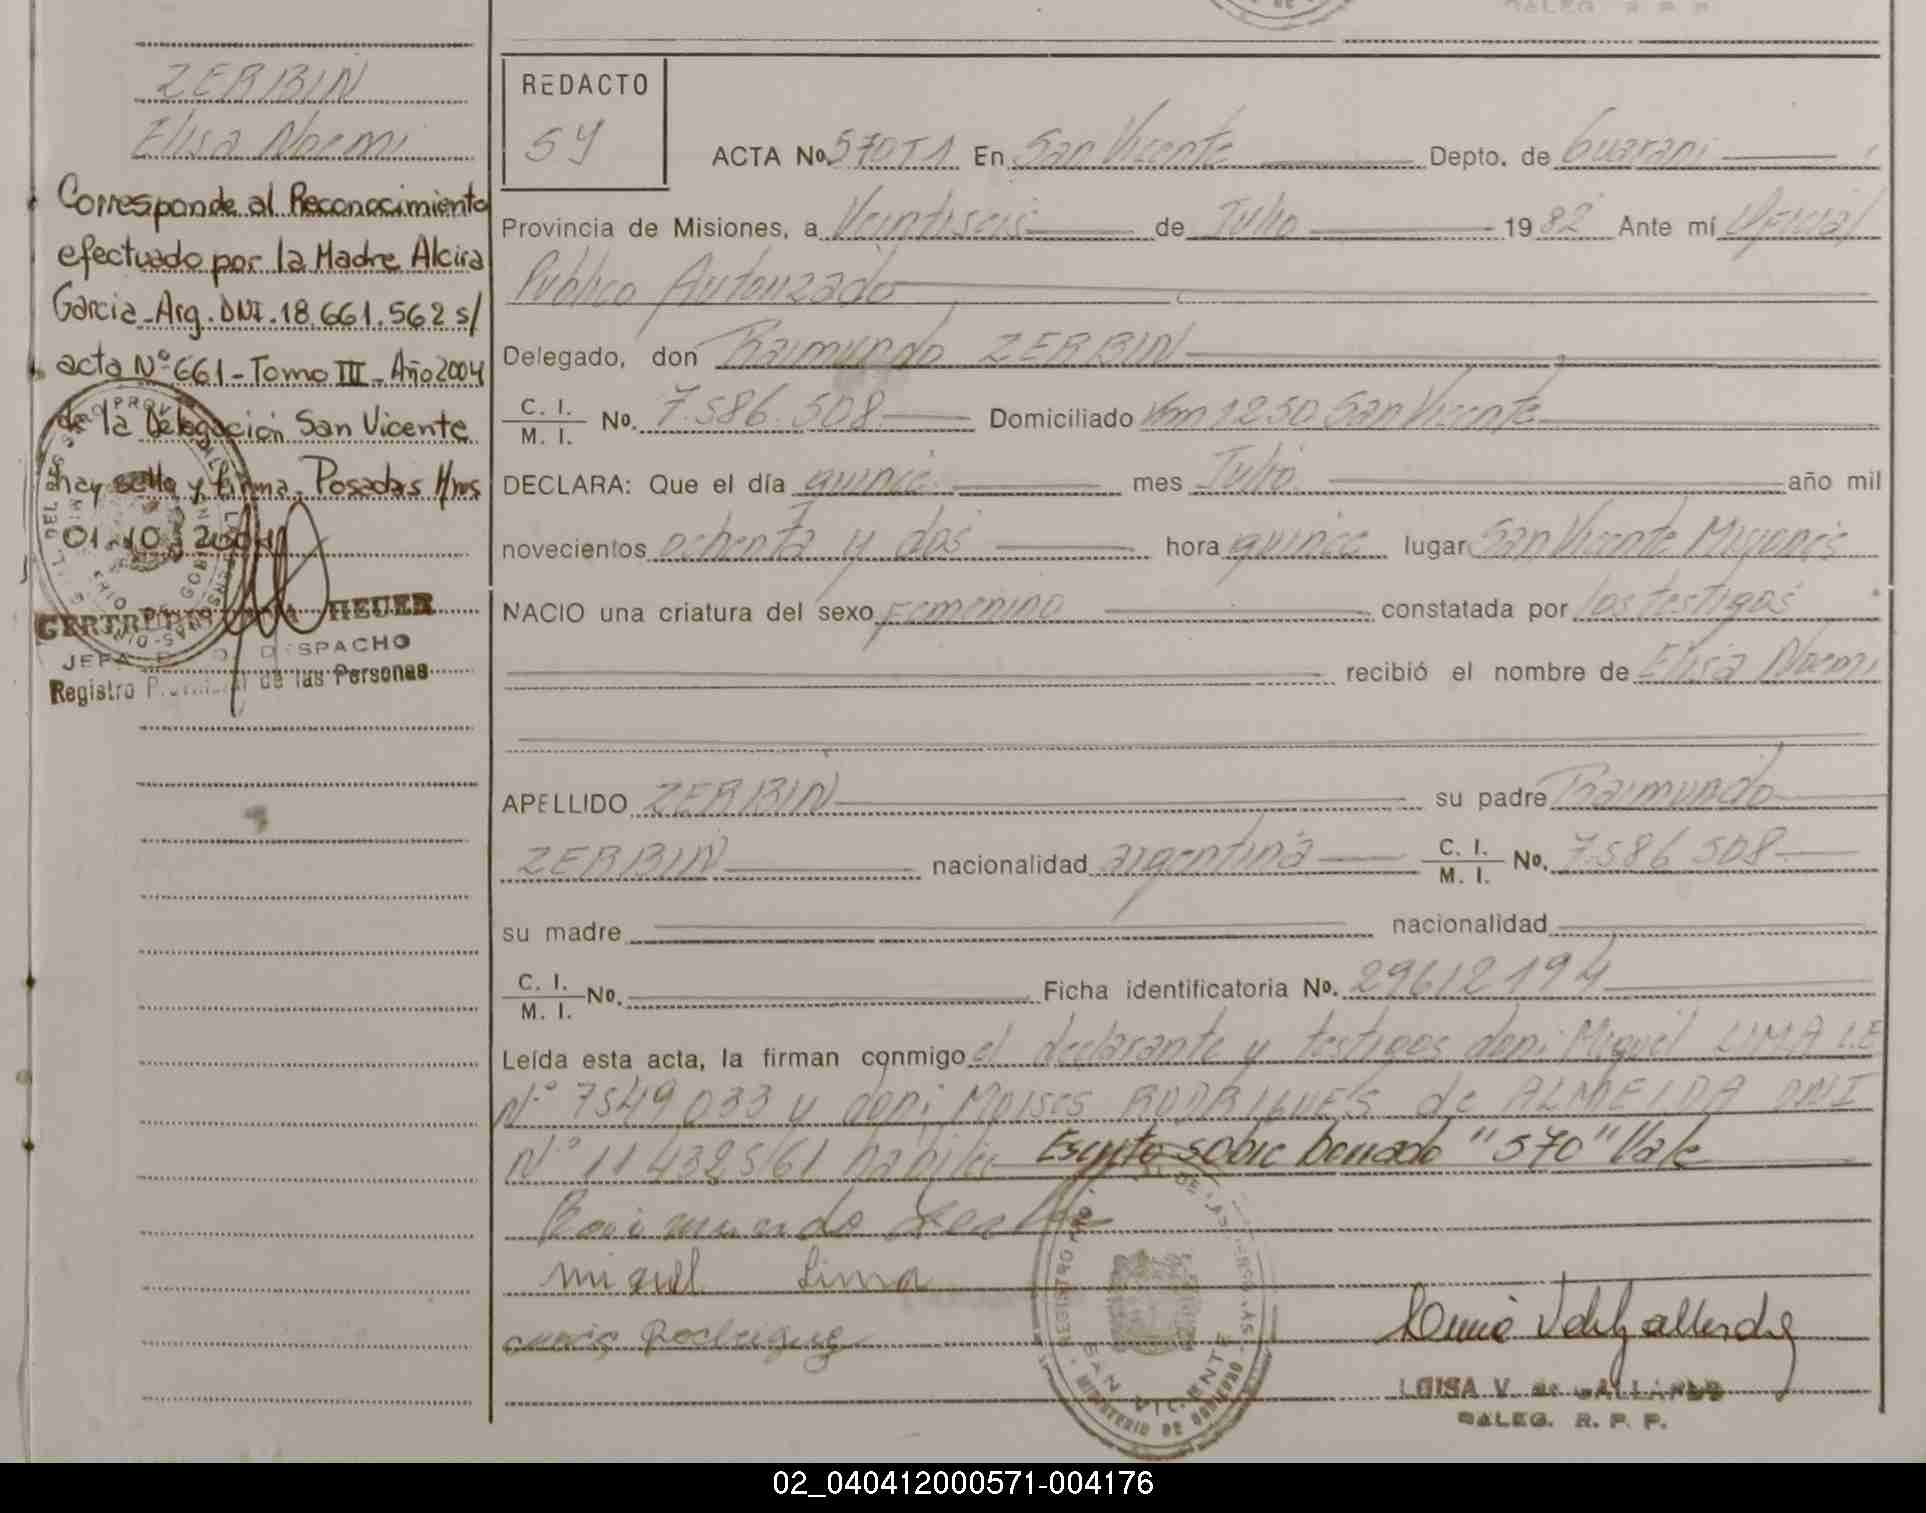 DALEG. R. P. P.
ZERBIN
Elisa Noemi
Corresponde al Reconocimiento
efectuado por la Madre Alcira
Garcia - Arg. DNI. 18.661.562 s/
acta Nº 661 - Tomo III - Año 2004
de la Delegación San Vicente
hay sello y firma. Posadas Mnes
01-10-2004
HEUER
JEFA DESPACHO
Registro Provincial de las Personas
REDACTO
SY
ACTA No. 570T1 En San Vicente Depto. de Guarani
Provincia de Misiones, a Veintiseis de Julio 1982 Ante mí Oficial
Publico Autorizado
Delegado, don Raimundo ZERBIN
C. I. / M. I. No. 7.586.508 Domiciliado Km 1250 San Vicente
DECLARA: Que el día quince mes Julio año mil
novecientos ochenta y dos hora quince lugar San Vicente Misiones
NACIO una criatura del sexo Femenino constatada por los testigos
recibió el nombre de Elisa Noemi
APELLIDO ZERBIN su padre Raimundo
ZERBIN nacionalidad argentina C. I. / M. I. No. 7.586.508
su madre nacionalidad
C. I. / M. I. No. Ficha identificatoria No. 29612194
Leída esta acta, la firman conmigo el declarante y testigos don: Miguel LIMA L.E
Nº 7549033 y don: Moises RODRIGUES de ALMEIDA DNI
Nº 11432561 habiles Escrito sobre borrado "570" Vale
Raimundo
miguel Lima
Rodriguez
REGISTRO DE LAS PERSONAS
SAN VICENTE
MINISTERIO DE GOBIERNO
LUISA V. de GALLARDO
DALEG. R. P. P.
02_040412000571-004176